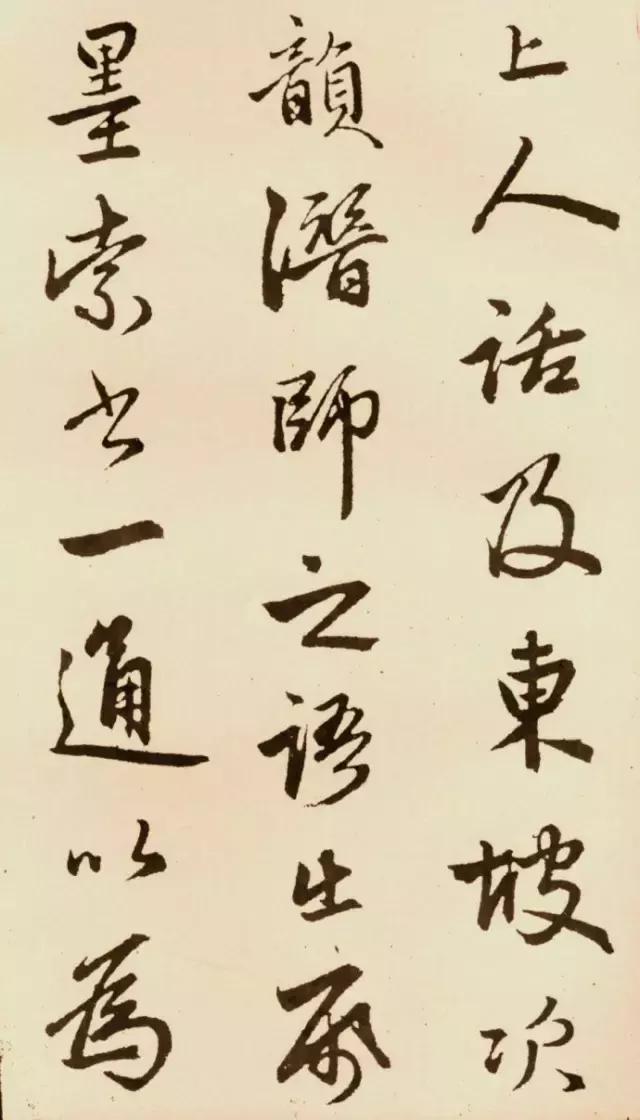 上人話及東坡次
韻潛師之語出紙
墨索書一通以為